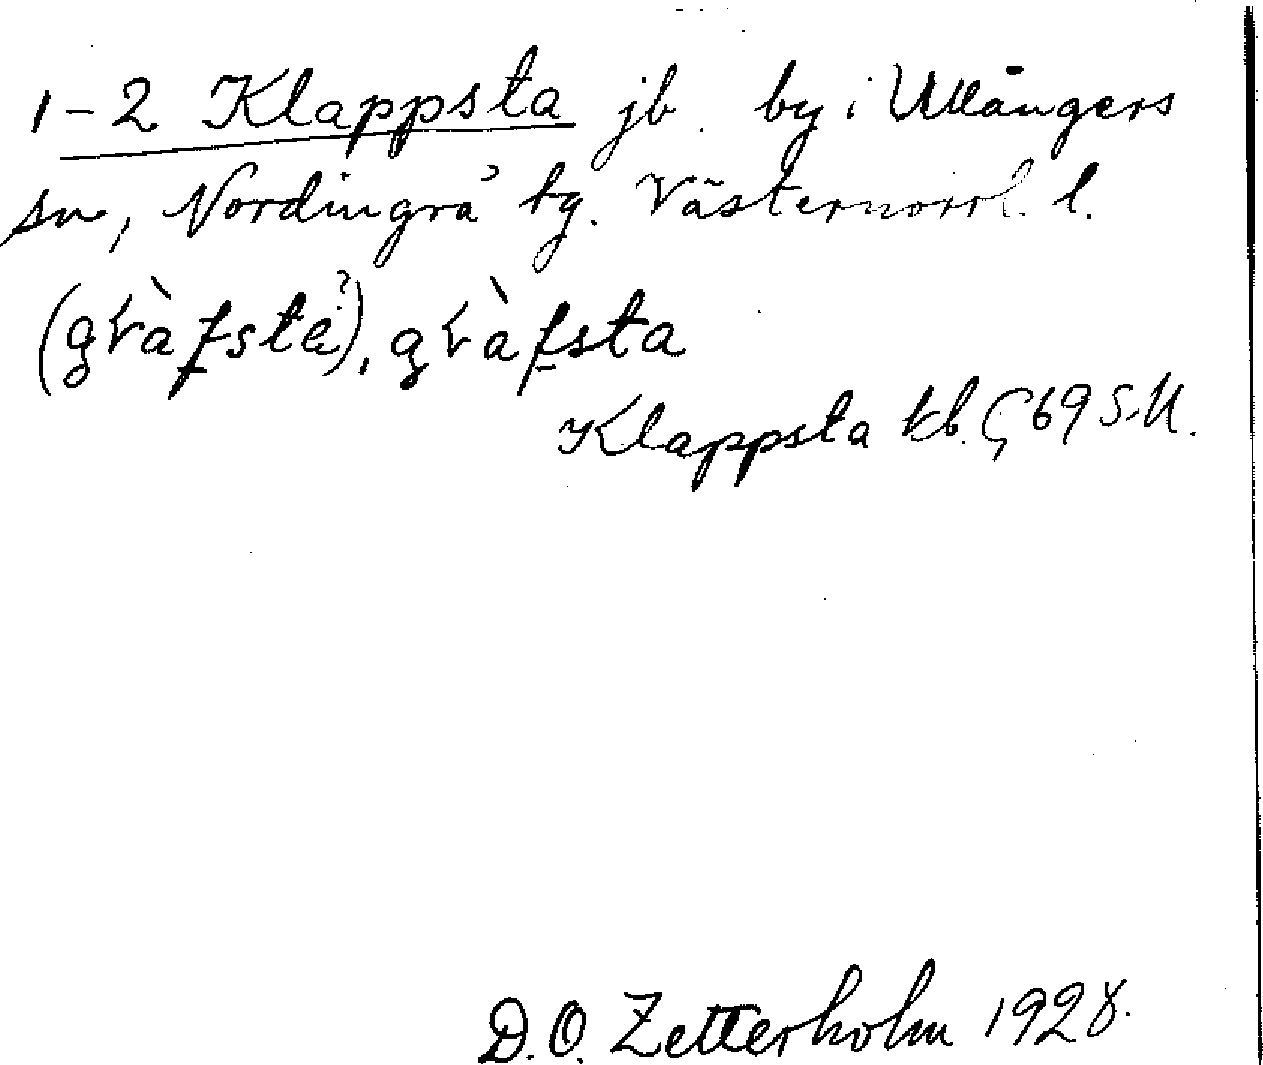 1-2 Klappsta jb. by i Ullångers
sn, Nordingrå tg. Västernorrl. l.
(gràfsta?), gràfsta
Klappsta kb. Ç 69 S.U.
D.O. Zetterholm 1928.